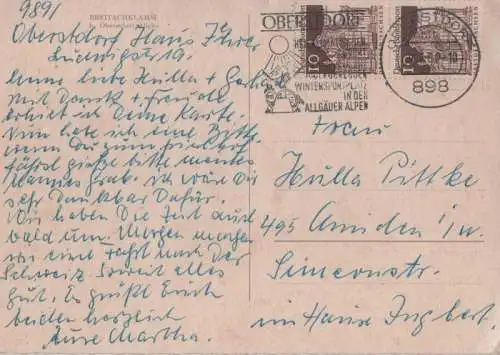 9891
BREITACHKLAMM
b. Oberstdorf/Allgäu
Oberstdorf Haus
Ludwigstr 19.
Meine liebe Hulla + Gerha
mit Dank + Freude
erhielt ich Deine Karte.
Nun habe ich eine Bitte
wenn Du zum Friedhof
fährst gieße bitte meines
Mannes Grab. ich wäre Dir
sehr Dankbar Dafür.
Wir haben Die Zeit auch
bald um. Morgen machen
wir eine Fahrt nach Der
Schweiz. Soweit alles
gut. Es grüßt Euch
beiden herzlich
Eure Martha.
OBERSTDORF
WINTERSPORTPLATZ
IN DEN
ALLGÄUER ALPEN
OBERSTDORF
898
10
10
Frau
Hulla Pittke
495 Minden i/w.
Simeonstr.
im Hause Ingbert.